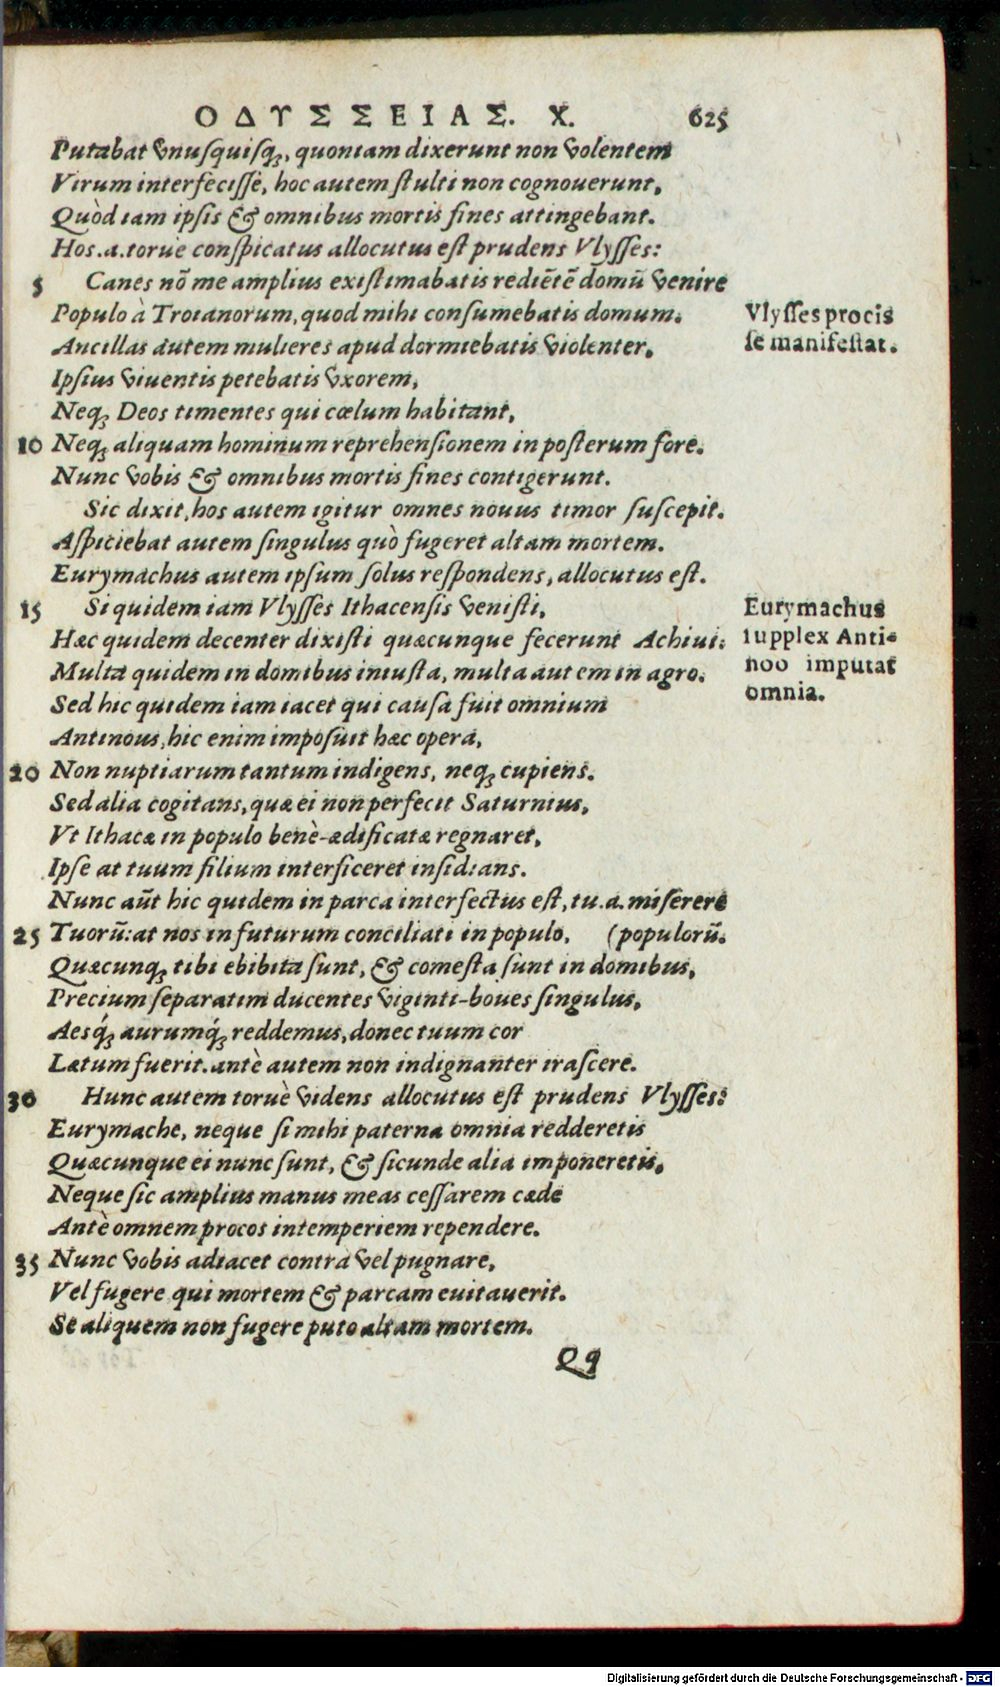 ΟΔΥΣΣΕΙΑΣ. Χ. 625
Putabat vnuſquiſq́;, quoniam dixerunt non volentem
Virum interfeciſſe, hoc autem ſtulti non cognouerunt,
Quòd iam ipſis & omnibus mortis fines attingebant.
Hos.a.toruè conſpicatus allocutus eſt prudens Vlyſſes:
5 Canes nõ me amplius exiſtimabatis rediẽtẽ domũ venire
Populo à Troianorum, quod mihi conſumebatis domum.
Vlyſſes procis
ſe manifeſtat.
Ancillas autem mulieres apud dormiebatis violenter,
Ipſius viuentis petebatis vxorem,
Neq; Deos timentes qui cœlum habitant,
10 Neq; aliquam hominum reprehenſionem in poſterum fore.
Nunc vobis & omnibus mortis fines contigerunt.
Sic dixit, hos autem igitur omnes nouus timor ſuſcepit.
Aſpiciebat autem ſingulus quò fugeret altam mortem.
Eurymachus autem ipſum ſolus reſpondens, allocutus eſt.
15 Si quidem iam Vlyſſes Ithacenſis veniſti,
Hæc quidem decenter dixiſti quæcunque fecerunt Achiui:
Multa quidem in domibus iniuſta, multa autem in agro.
Eurymachus
ſupplex Anti-
noo imputat
omnia.
Sed hic quidem iam iacet qui cauſa fuit omnium
Antinous, hic enim impoſuit hæc opera,
20 Non nuptiarum tantum indigens, neq; cupiens.
Sed alia cogitans, quæ ei non perfecit Saturnius,
Vt Ithacæ in populo benè-ædificatæ regnaret,
Ipſe at tuum filium interficeret inſidians.
Nunc aũt hic quidem in parca interfectus eſt, tu.a. miſerere
25 Tuorũ: at nos in futurum conciliati in populo, (populorũ.
Quæcunq; tibi ebibita ſunt, & comeſta ſunt in domibus,
Precium ſeparatim ducentes viginti-boues ſingulus,
Aesq́; aurumq́; reddemus, donec tuum cor
Lætum fuerit. antè autem non indignanter iraſcere.
30 Hunc autem toruè videns allocutus eſt prudens Vlyſſes:
Eurymache, neque ſi mihi paterna omnia redderetis
Quæcunque ei nunc ſunt, & ſicunde alia imponeretis,
Neque ſic amplius manus meas ceſſarem cæde
Antè omnem procos intemperiem rependere.
35 Nunc vobis adiacet contrà vel pugnare,
Vel fugere qui mortem & parcam euitauerit.
Se aliquem non fugere puto altam mortem.
Qq
Digitalisierung gefördert durch die Deutsche Forschungsgemeinschaft - DFG